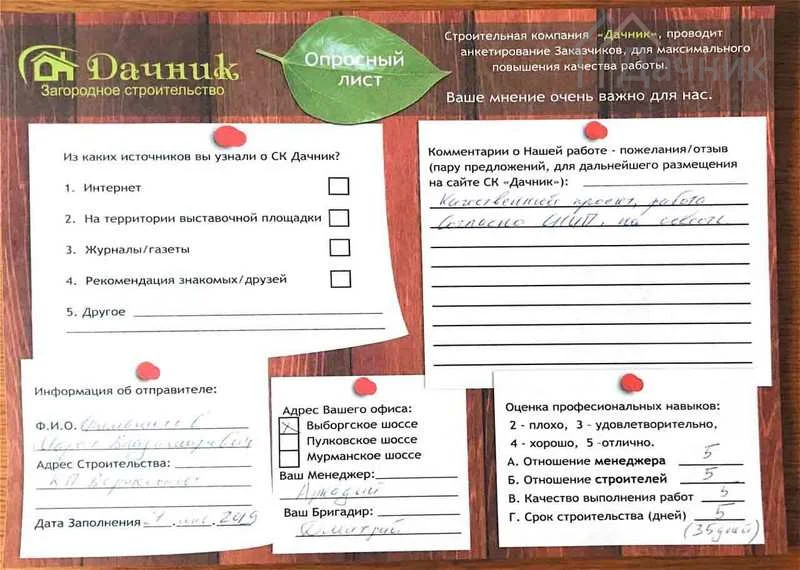 Дачник
Загородное строительство
Опросный
лист
Строительная компания «Дачник», проводит
анкетирование Заказчиков, для максимального
повышения качества работы.
Ваше мнение очень важно для нас.
Дачник
Из каких источников вы узнали о СК Дачник?
1. Интернет
2. На территории выставочной площадки
3. Журналы/газеты
4. Рекомендация знакомых/друзей
5. Другое
Комментарии о Нашей работе - пожелания/отзыв
(пару предложений, для дальнейшего размещения
на сайте СК «Дачник»):
Качественный проект, работа
Согласно СНИП, на совесть
Информация об отправителе:
Ф.И.О.
Адрес Строительства:
КП
Дата Заполнения 2019
Адрес Вашего офиса:
Выборгское шоссе
Пулковское шоссе
Мурманское шоссе
Ваш Менеджер:
Аркадий
Ваш Бригадир:
Дмитрий
Оценка профессиональных навыков:
2 - плохо, 3 - удовлетворительно,
4 - хорошо, 5 -отлично.
А. Отношение менеджера 5
Б. Отношение строителей 5
В. Качество выполнения работ 5
Г. Срок строительства (дней) 5
(35 дней)